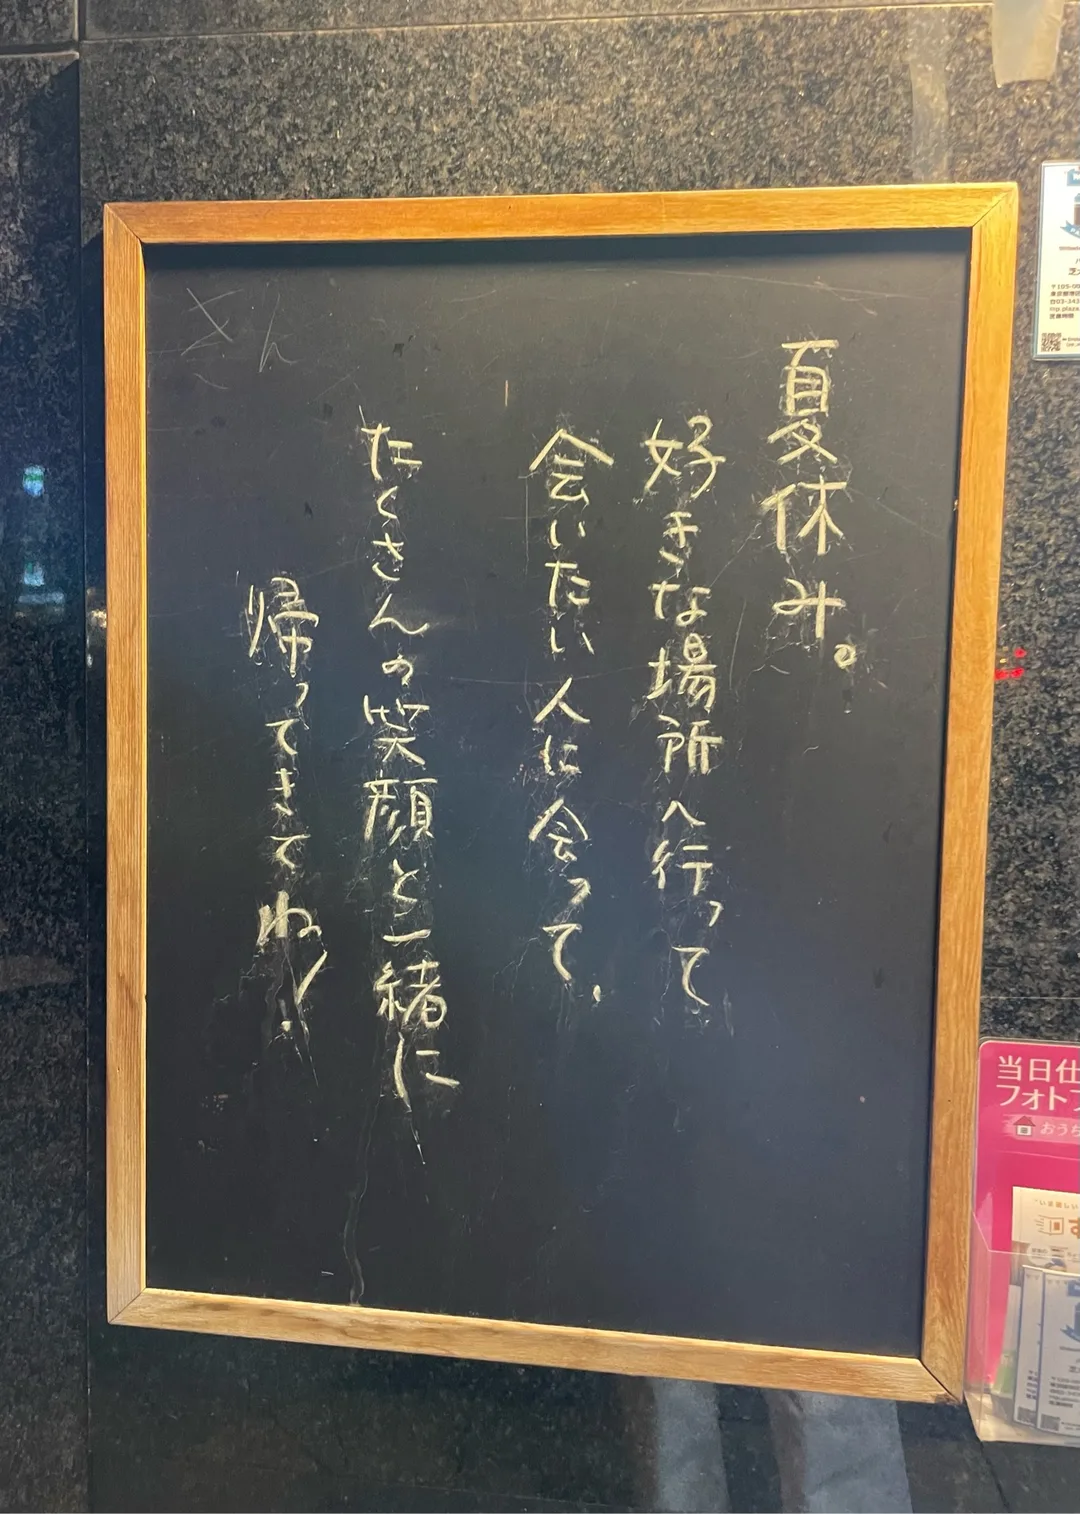 夏休み。
好きな場所へ行って
会いたい人に会って、
たくさんの笑顔と一緒に
帰ってきてね!
当日仕
フォトフ
おうち